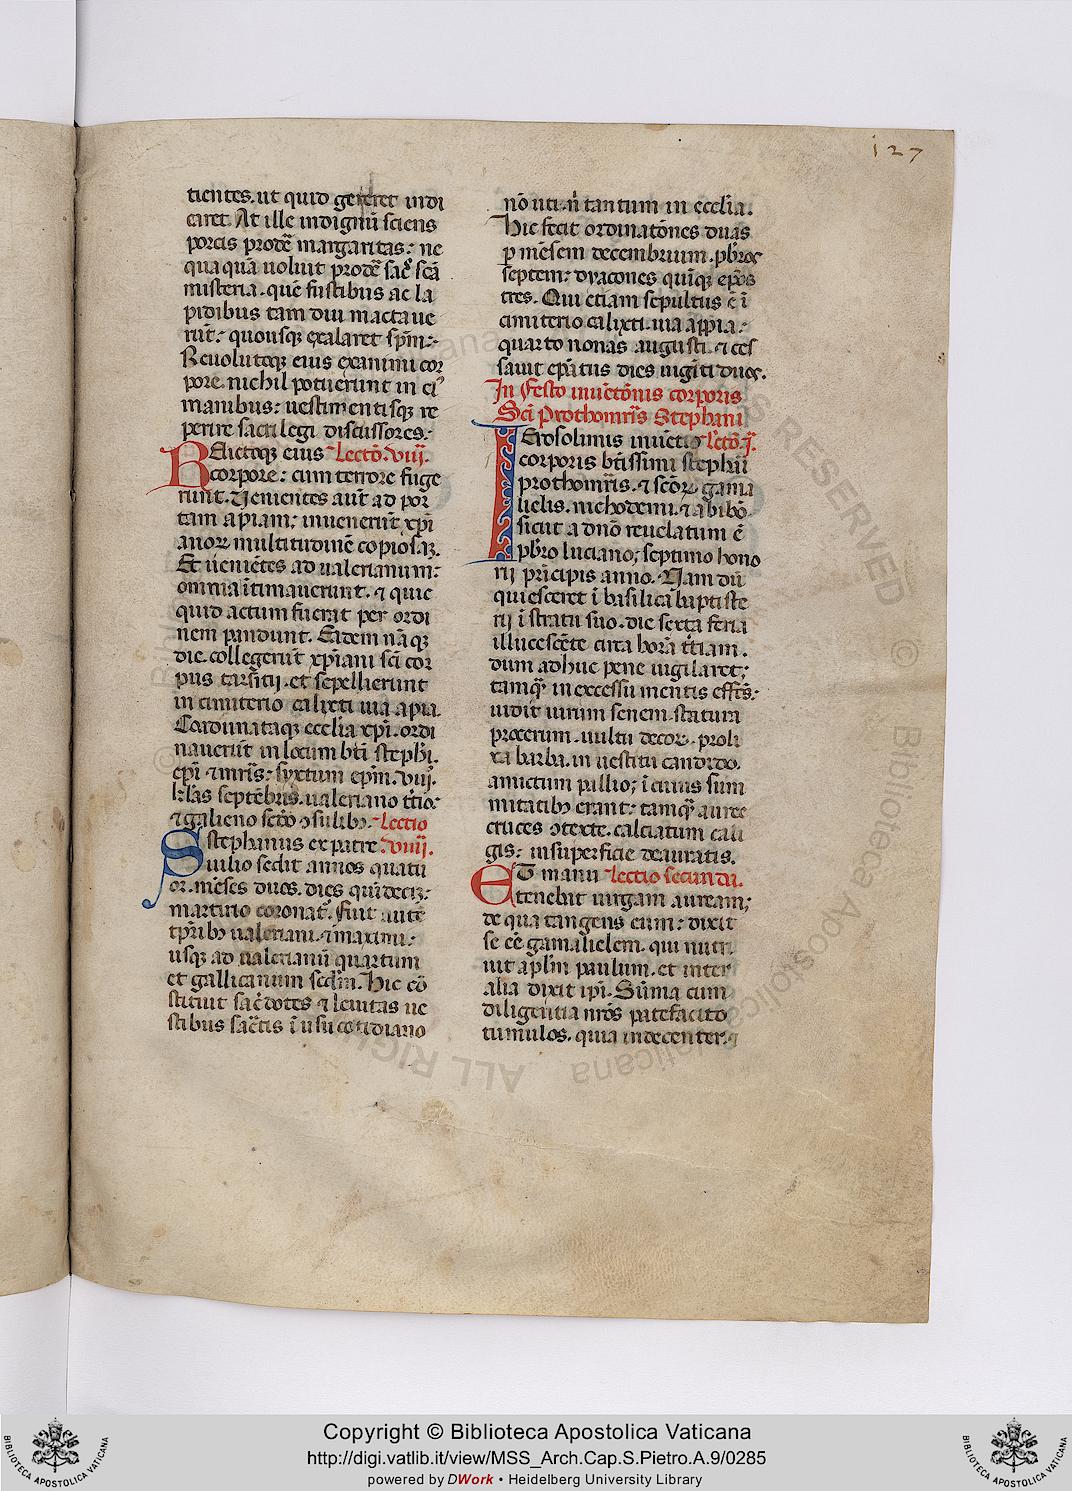 127
tientes. ut quid gereret indi
caret. At ille indignū sciens
porcis prodē margaritas: ne
quaquā uoluit prodē sac̄ scā
misteria. quē fustibus ac la
pidibus tam diu mactaue
rūt: quousq; exalaret spm̄:
Reuolutoq; eius exanimi cor
pore. nichil potuerunt in ei9
manibus: uestimentisq; re
perire sacrilegi discussores.
Relictoq; eius Lectō. viij.
corpore: cum terrore fuge
runt. Uenientes aut̄ ad por
tam apiam: inuenerūt xp̄i
anoꝝ multitudinē copiosaꝫ.
Et uenietes ad ualerianum:
omnia ītimauerunt. ⁊ quic
quid actum fuerat per ordi
nem pandunt. Eadem nāq;
die. collegerūt xp̄iani sc̄i cor
pus tarsitij. et sepellierunt
in cimiterio calixti uia apia.
Cordinataq; ecclīa xp̄i. ordi
nauerūt in locum bt̄i steph̄i.
ep̄i ⁊ mr̄is: syxtum ep̄m. viij.
kl̄as septēbris. ualeriano t̄tio:
⁊ galieno sc̄do ↄsulibꝫ. Lectio
Stephanus ex patre viiij.
iulio sedit annos quatu
or. mēses duos. dies quīdeciꝫ:
martirio coronat9. Fuit autē
tp̄ribꝫ ualeriani. ⁊ maximi:
usq; ad ualerianū quartum
et gallicanum sedm̄. Hic cō
stituit sac̄dotes ⁊ leuitas ue
stibus sac̄tis ī usu cotidiano
nō uti. n̄ tantum in ecclīa.
Hic fecit ordinatōnes duas
ꝑ mēsem decembrium. pb̄ros
septem: dyacones quīq; ep̄os
tres. Qui etiam sepultus ē ī
cimiterio calixti. uia appia:
quarto nonas augusti. ⁊ ces
sauit ep̄atus dies uigīti duos.
In Festo inuētōnis corporis
Sc̄i Prothomr̄is Stephani
Ierosolimis inuētio Lectō. j.
corporis bt̄issimi steph̄i
prothomr̄is. ⁊ sc̄orꝝ gama
lielis. nichodemi. ⁊ abibō.
sicut a dn̄o reuelatum ē
pb̄ro luciano; septimo hono
rij pr̄incipis anno. Nam dū
quiesceret ī basilica baptiste
rij ī stratu suo. die sexta feria
illucescēte circa horā t̄tiam.
dum adhuc pene uigilaret;
tamq̄ in excessu mentis effc̄s:
uidit uirum senem. statura
procerum. uultu decorꝝ. proli
xa barba. in uestitu candido.
amictum pallio; ī cuius sum
mitatibꝫ erant: tamq̄ auree
cruces ↄtexte. calciatum cali
gis: insuperficie deauratis.
Et manu Lectio secunda.
tenebat uirgam auream;
de qua tangens eum: dixit
se cē gamalielem. qui nutri
uit apl̄m paulum. et inter
alia dixit ip̄i. Sūma cum
diligentia nr̄os patefacito
tumulos. quia indecenter. ⁊
Copyright © Biblioteca Apostolica Vaticana
http://digi.vatlib.it/view/MSS_Arch.Cap.S.Pietro.A.9/0285
powered by DWork • Heidelberg University Library
BIBLIOTECA APOSTOLICA VATICANA
BIBLIOTECA APOSTOLICA VATICANA